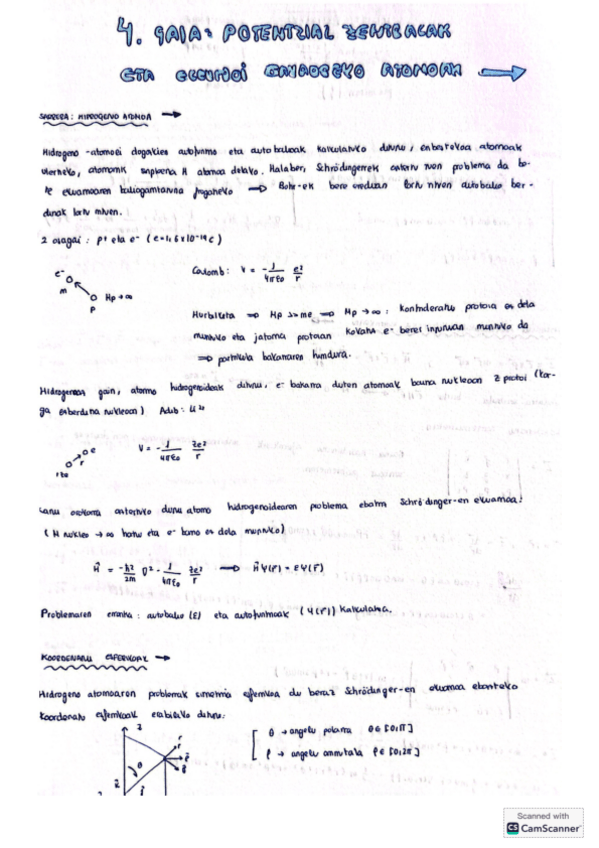 4. GAIA: POTENTZIAL ZENTRALAK
ETA ELEKTROI BAKARREKO ATOMOAK →
SARRERA: HIDROGENO ATOMOA →
Hidrogeno-atomoei dagokien autofuntzio eta autobalioak kalkulatuko ditugu, atomoak
atomorik sinpleena H atomoa delako. Halaber, Schrödingerrek aztertu zuen problema da be-
re ekuazioaren baliogarritasuna frogatzeko → Bohr-ek bere ereduan lortu zituen autobalio ber-
dinak lortu zituen.
2 osagai: p+ eta e- (e=1,6x10^-19 C)
e-
m
p
Mp→∞
Coulomb: V = - 1/4πε0 e²/r
Hurbilketa ⇒ Mp >> me ⇒ Mp → ∞: Kontsideratu protoia ez dela
mugituko eta jatorria protoian kokatu e- beraz inguruan mugituko da
⇒ partikula bakarraren higidura.
Hidrogenoaz gain, atomo hidrogenoideak ditugu, e- bakarra duten atomoak baina nukleoan Z protoi (kar-
ga ezberdina nukleoan) Adib:
e
+Ze
V = - 1/4πε0 Ze²/r
atomo hidrogenoidearen problema ebatzi Schrödinger-en ekuazioa:
(M nukleo → ∞ hartu eta e- baino ez dela mugituko)
Ĥ = -ħ²/2m ∇² - 1/4πε0 Ze²/r → Ĥψ(r⃗) = Eψ(r⃗)
Problemaren erronka: autobalio (E) eta autofuntzioak (ψ(r⃗)) kalkulatzea.
KOORDENATU ESFERIKOAK →
Hidrogeno atomoaren problemak simetria esferikoa du beraz Schrödinger-en ekuazioa ebazteko
koordenatu esferikoak erabiliko ditugu:
z
r
θ
θ → angelu polarra θ∈[0,π]
φ → angelu azimutala φ∈[0,2π]
Scanned with
CS CamScanner